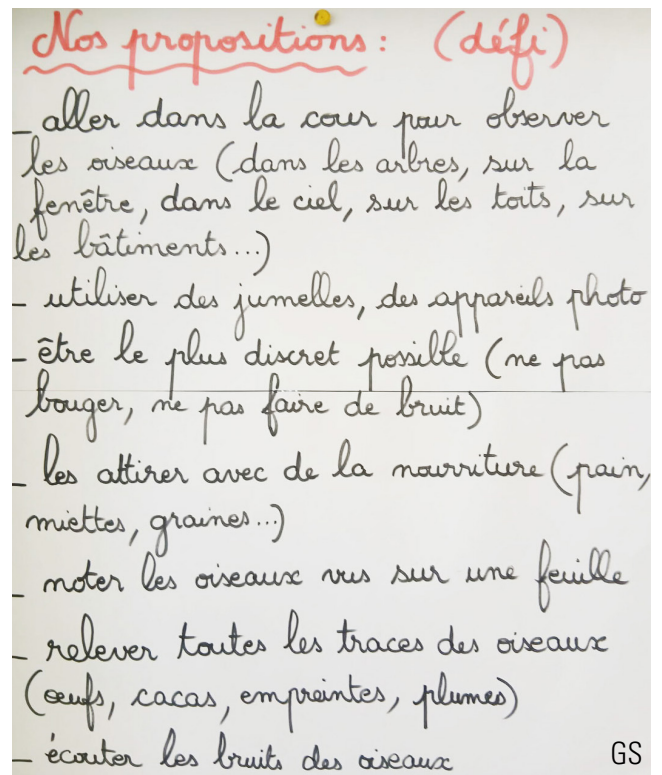 Nos propositions : (défi)
_ aller dans la cour pour observer
les oiseaux (dans les arbres, sur la
fenêtre, dans le ciel, sur les toits, sur
les bâtiments...)
_ utiliser des jumelles, des appareils photo
_ être le plus discret possible (ne pas
bouger, ne pas faire de bruit)
_ les attirer avec de la nourriture (pain,
miettes, graines...)
_ noter les oiseaux vus sur une feuille
_ relever toutes les traces des oiseaux
(œufs, cacas, empreintes, plumes)
_ écouter les bruits des oiseaux
GS